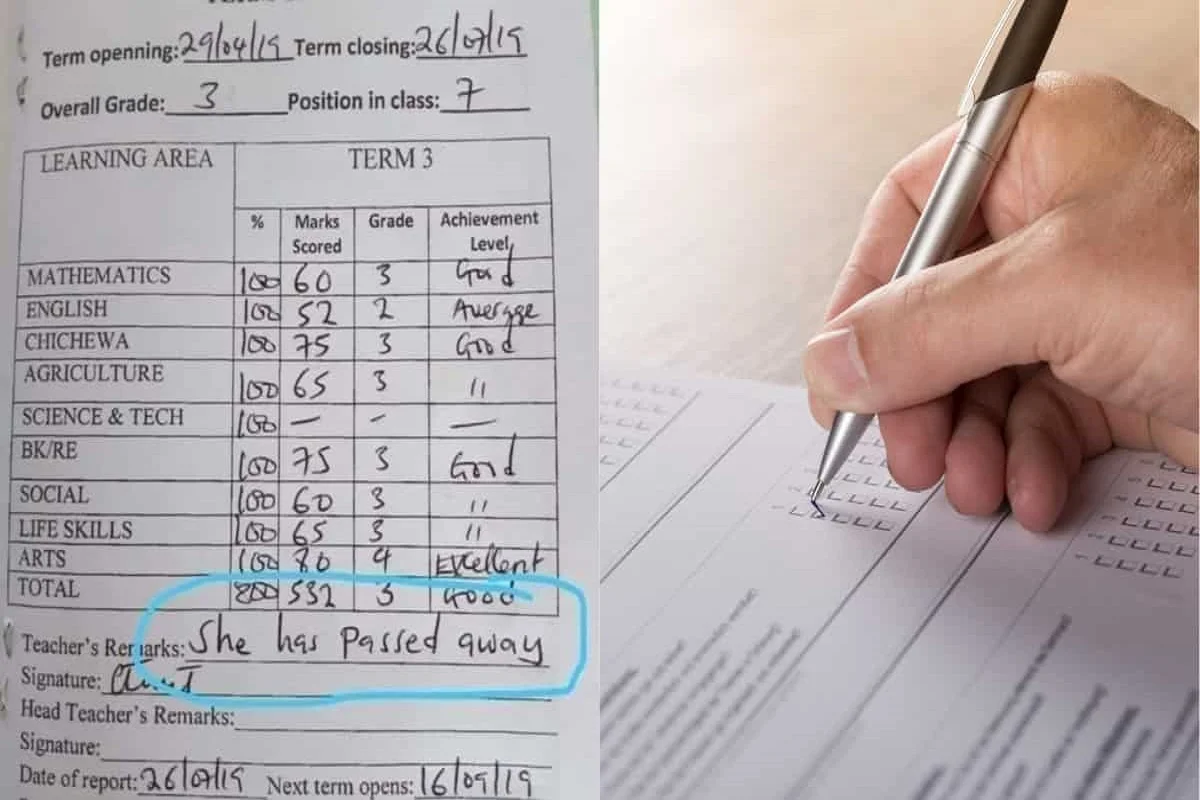 Term openning: 29/04/19 Term closing: 26/07/19
Overall Grade: 3 Position in class: 7
LEARNING AREA TERM 3
% Marks Scored Grade Achievement Level
MATHEMATICS 100 60 3 Good
ENGLISH 100 52 2 Average
CHICHEWA 100 75 3 Good
AGRICULTURE 100 65 3 "
SCIENCE & TECH 100 — - —
BK/RE 100 75 3 Good
SOCIAL 100 60 3 "
LIFE SKILLS 100 65 3 "
ARTS 100 80 4 Excellent
TOTAL 800 532 3 Good
Teacher's Remarks: She has passed away
Signature:
Head Teacher's Remarks:
Signature:
Date of report: 26/07/19 Next term opens: 16/09/19